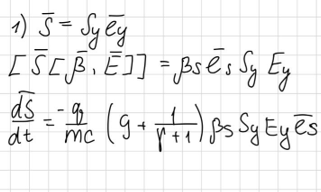 1) S̄ = Sy ēy
[S̄[β̄, Ē]] = βs ēs Sy Ey
dS̄/dt = -q/mc (g + 1/(γ+1)) βs Sy Ey ēs